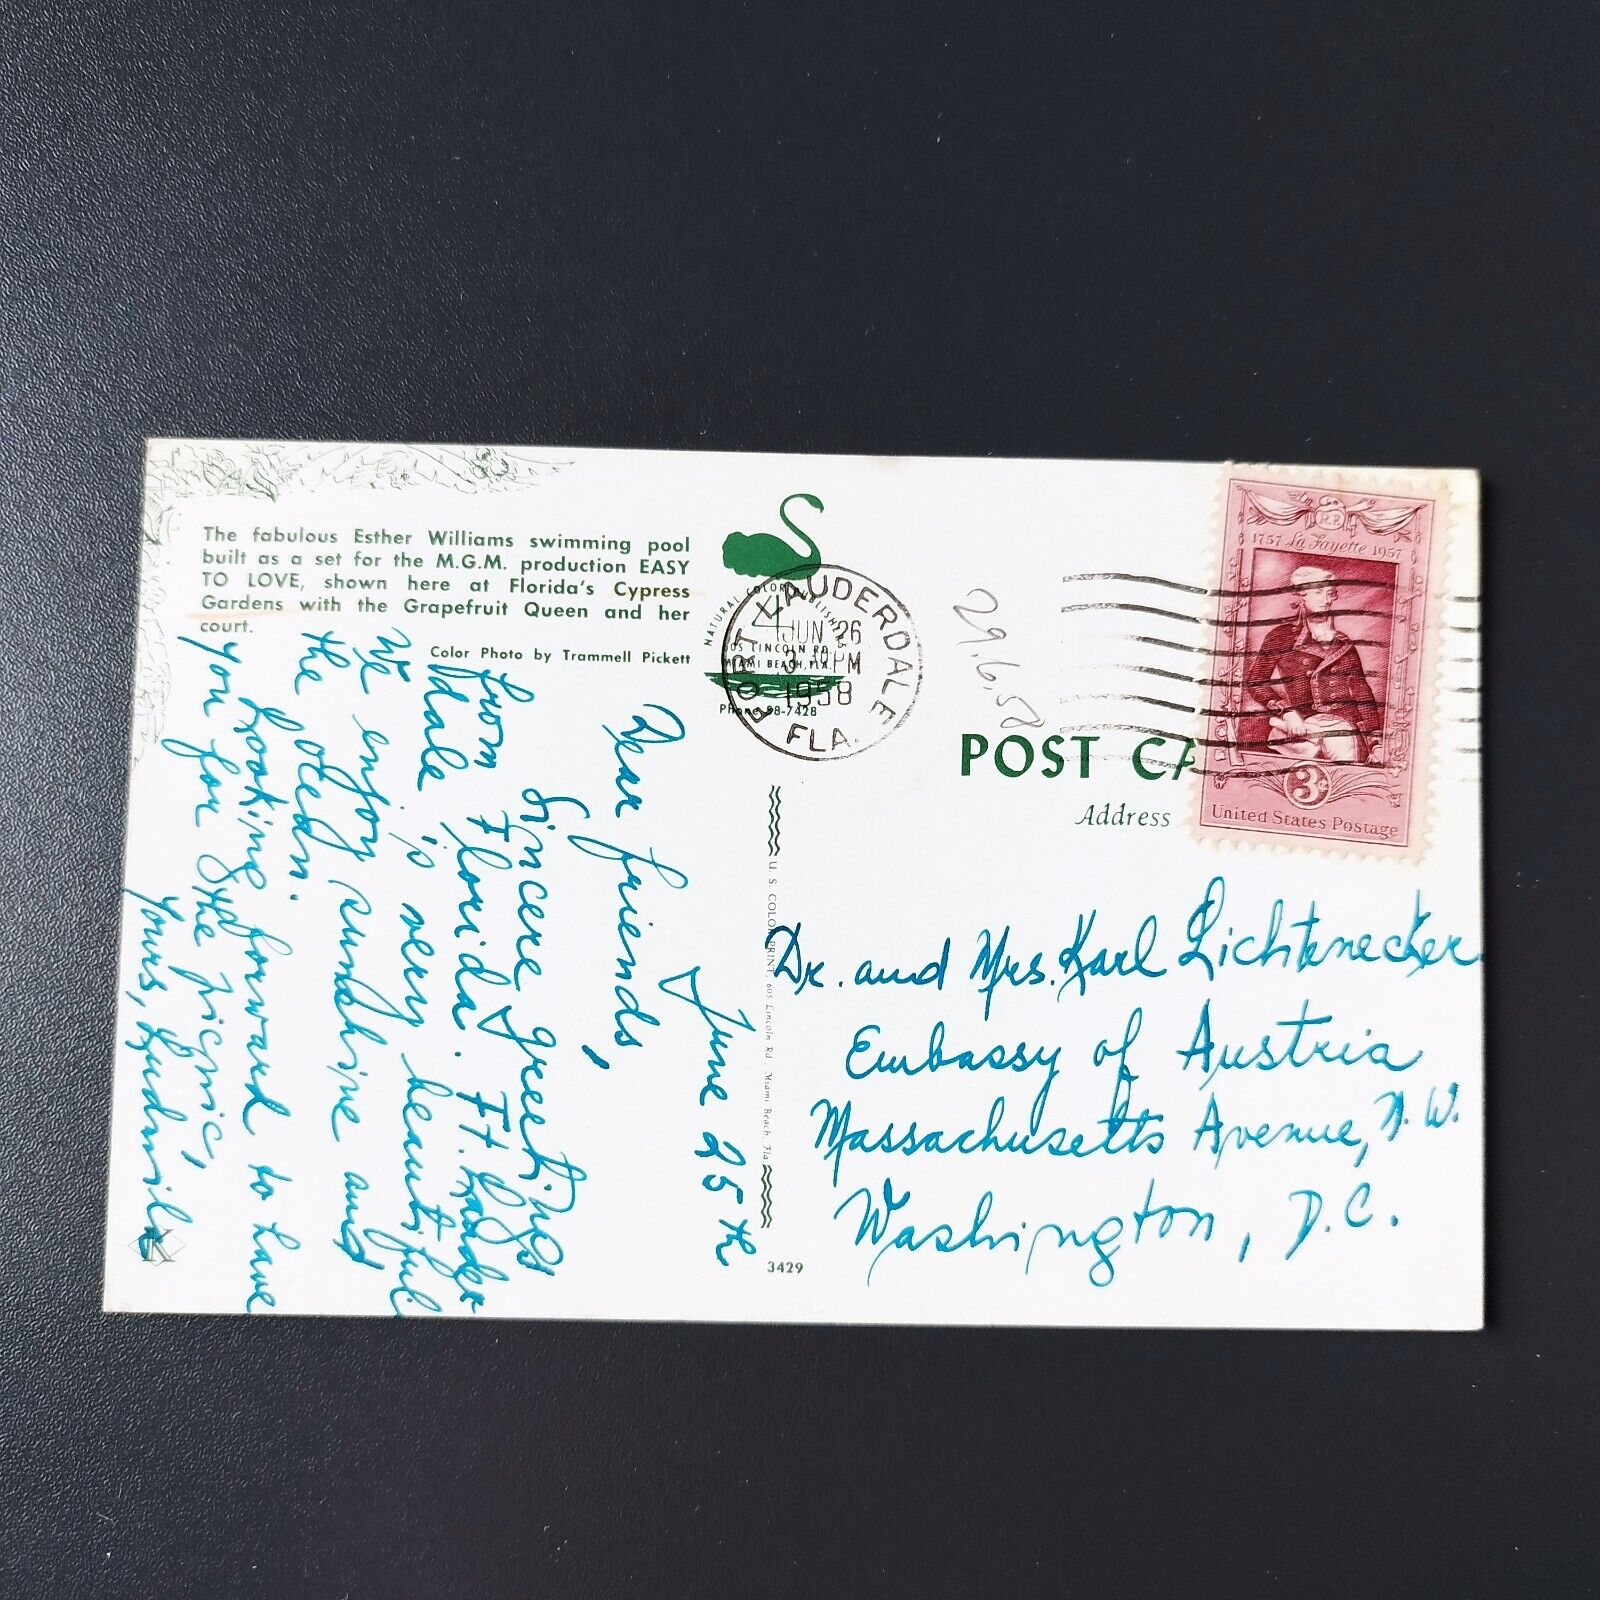 The fabulous Esther Williams swimming pool
built as a set for the M.G.M. production EASY
TO LOVE, shown here at Florida's Cypress
Gardens with the Grapefruit Queen and her
court.
Color Photo by Trammell Pickett
NATURAL COLOR PUBLISHERS
605 LINCOLN RD.
MIAMI BEACH, FLA.
Phone 58-7428
FORT LAUDERDALE
4
JUN 26
3 PM
1958
FLA.
29.6.58
1757 La Fayette 1957
3¢
United States Postage
POST CA
Address
June 25th
Dear friends,
Sincere greetings
from Florida. Ft. Lauder
dale is very beautiful
We enjoy sunshine and
the ocean.
Looking forward to have
you for the picnic,
Yours,
U. S. COLOR PRINT, 605 Lincoln Rd. Miami Beach, Fla
Dr. and Mrs. Karl Lichtenecker
Embassy of Austria
Massachusetts Avenue, N.W.
Washington, D.C.
3429
K